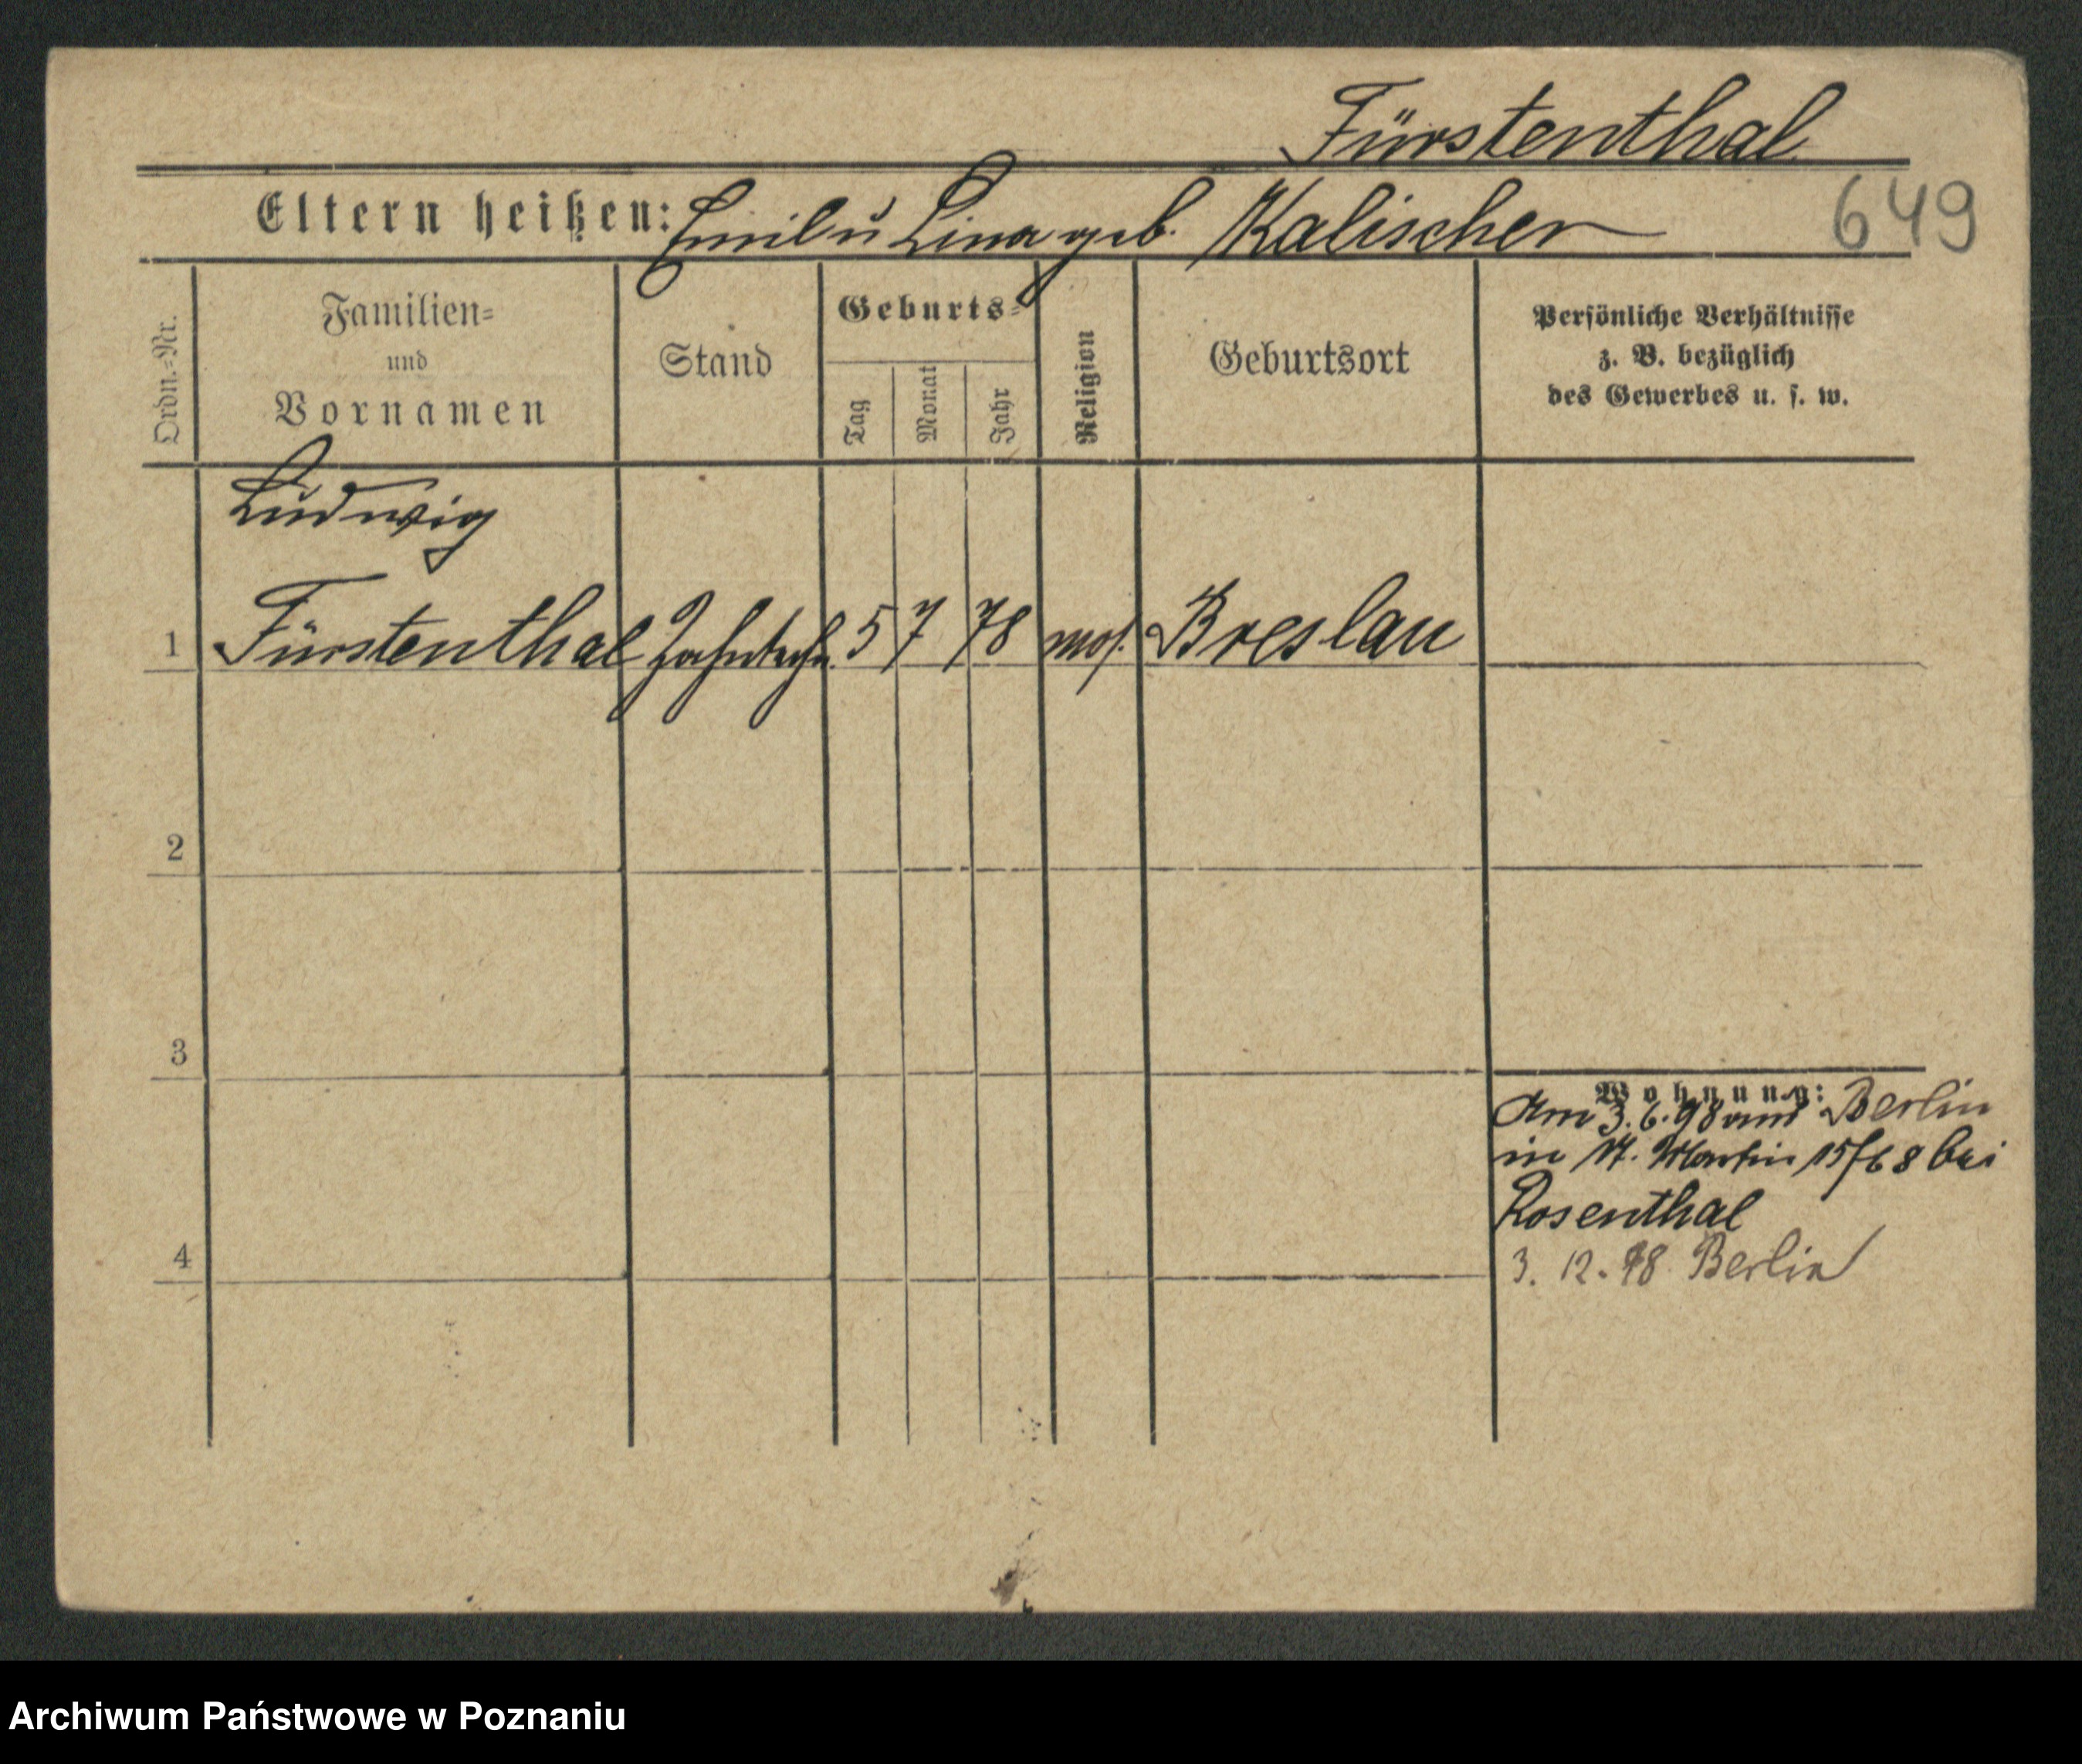 Fürstenthal
Eltern heißen: Emil u Lina geb. Kalischer
649
Ordn.-Nr.
Familien-
und
Vornamen
Stand
Geburts-
Tag
Monat
Jahr
Religion
Geburtsort
Persönliche Verhältnisse
z. B. bezüglich
des Gewerbes u. s. w.
Ludwig
1 Fürstenthal Zahntech. 5 7 78 mos. Breslau
2
3
Wohnung:
Am 3.6.98 aus Berlin
in Martin bei
Rosenthal
4
3. 12. 98 Berlin
Archiwum Państwowe w Poznaniu